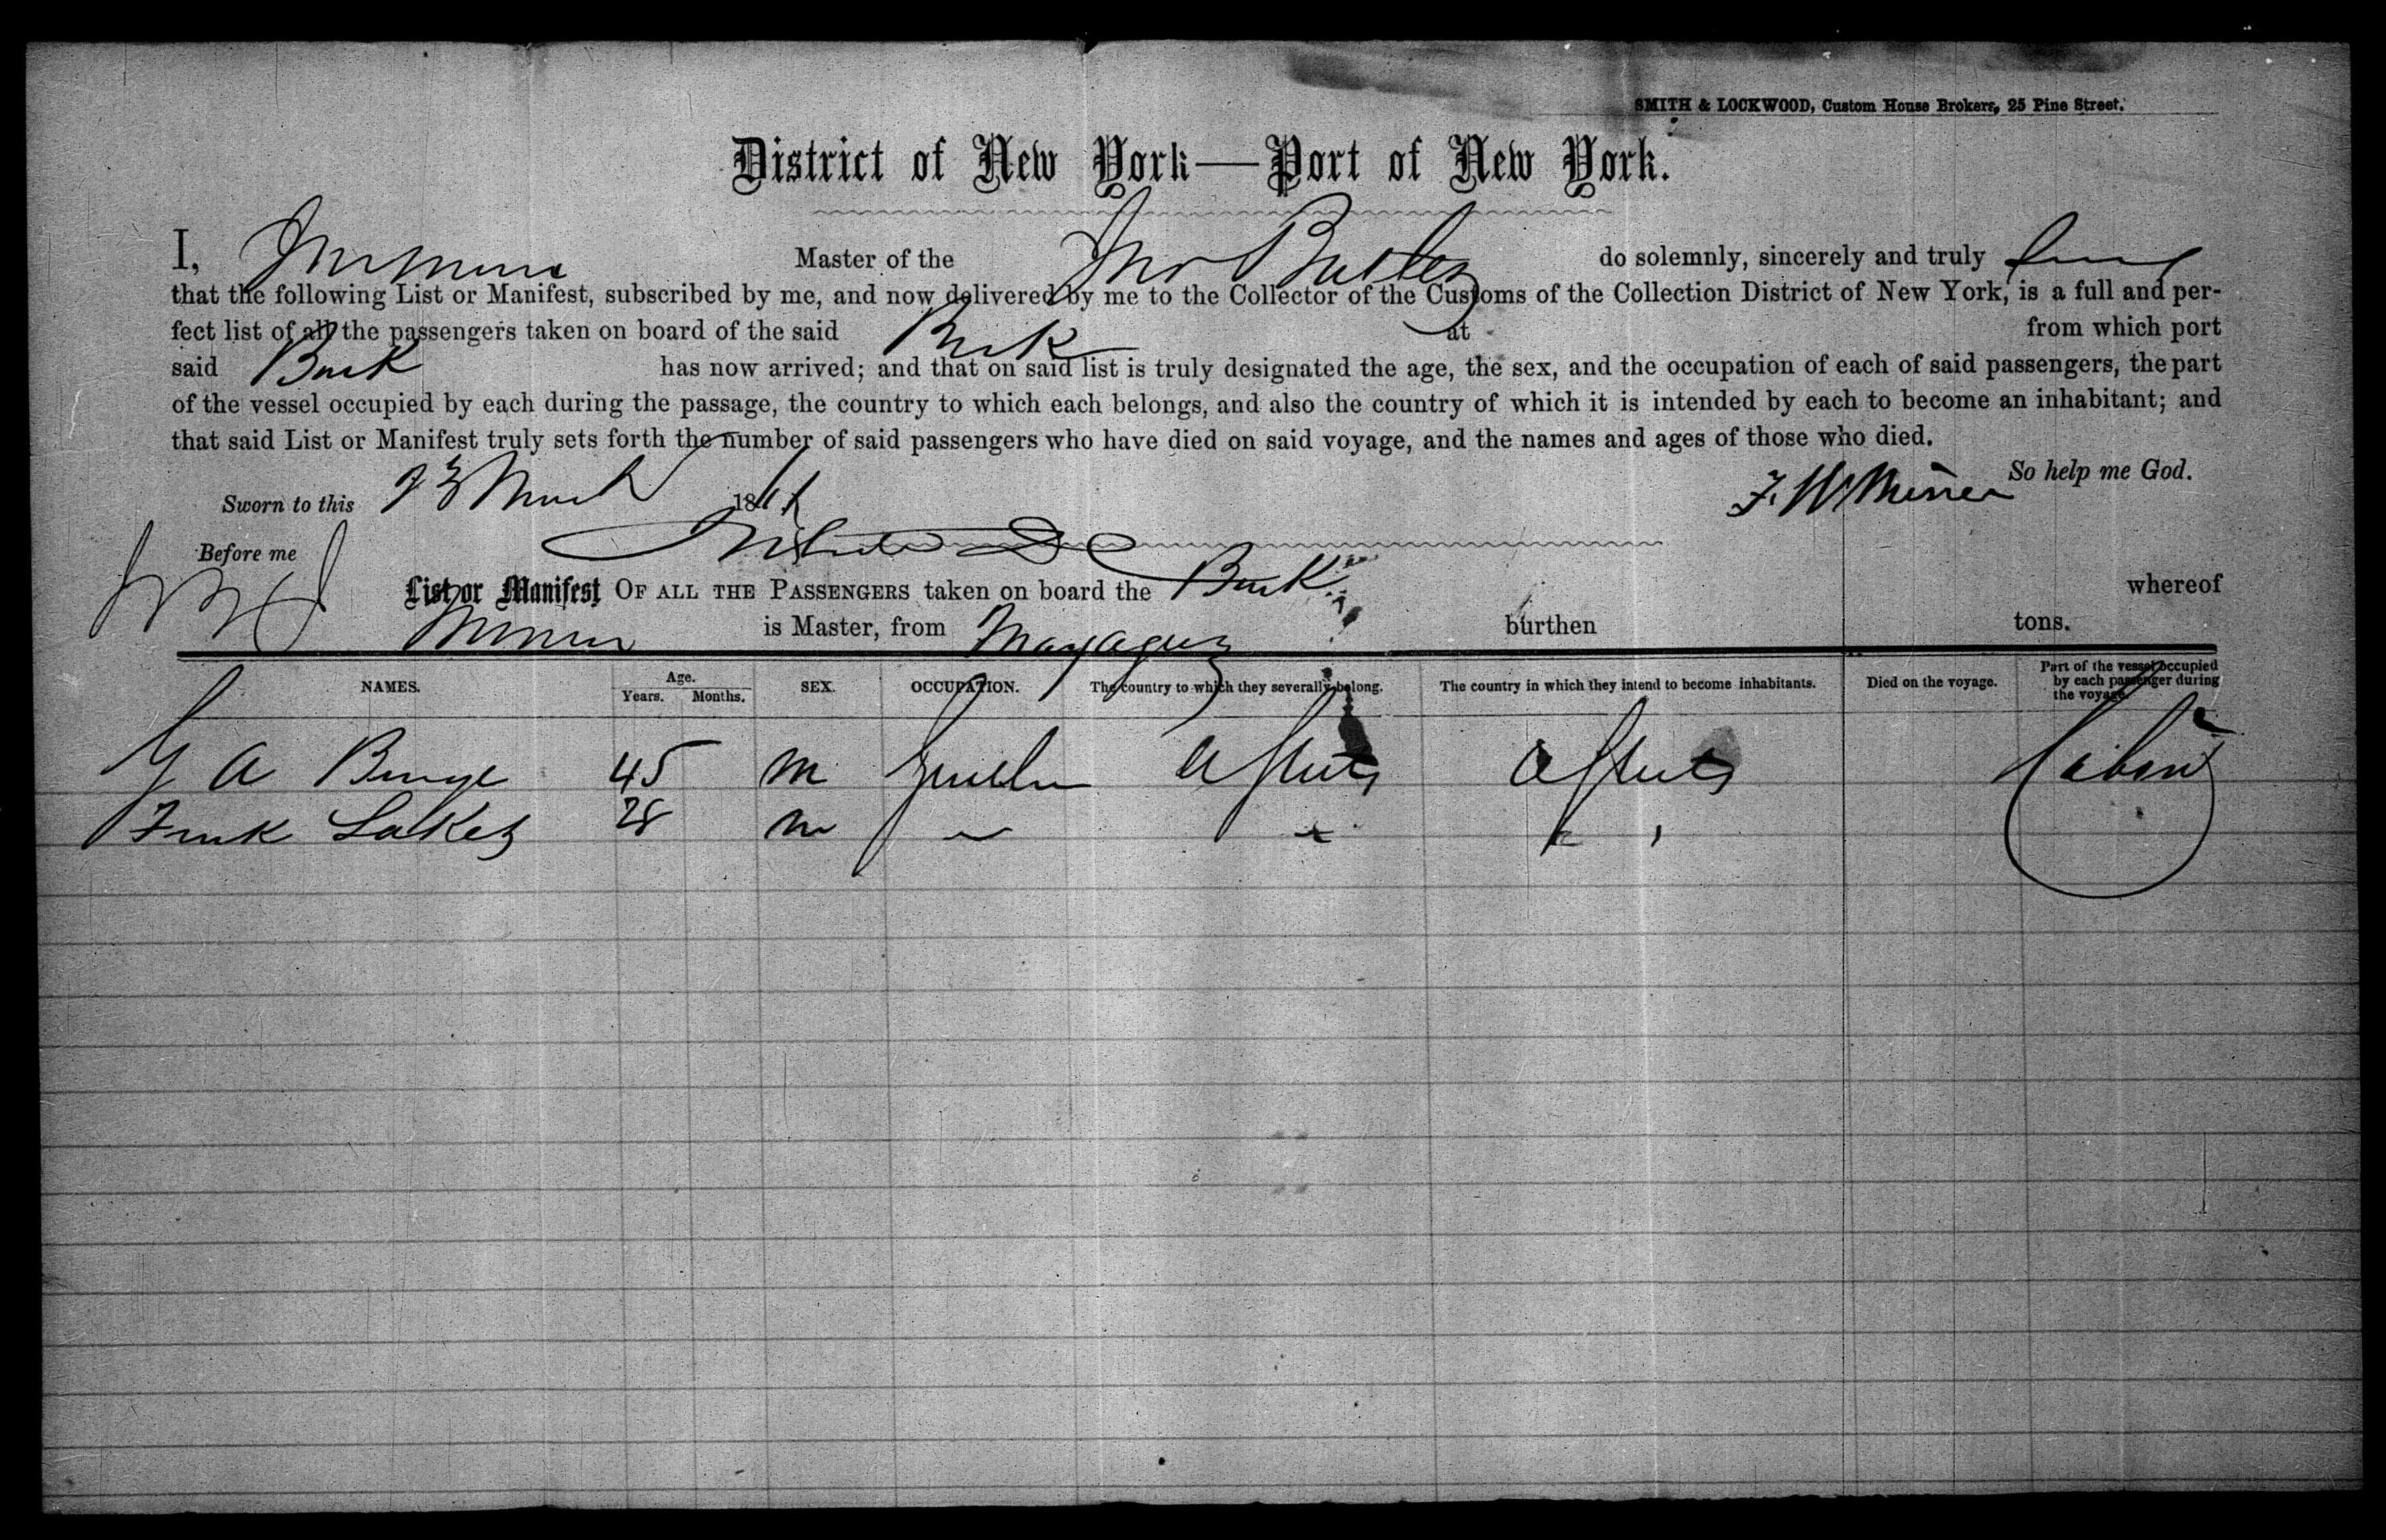 SMITH & LOCKWOOD, Custom House Brokers, 25 Pine Street.
District of New York—Port of New York.
I, Master of the Jno Butler do solemnly, sincerely and truly
that the following List or Manifest, subscribed by me, and now delivered by me to the Collector of the Customs of the Collection District of New York, is a full and per-
fect list of all the passengers taken on board of the said Bark at from which port
said Bark has now arrived; and that on said list is truly designated the age, the sex, and the occupation of each of said passengers, the part
of the vessel occupied by each during the passage, the country to which each belongs, and also the country of which it is intended by each to become an inhabitant; and
that said List or Manifest truly sets forth the number of said passengers who have died on said voyage, and the names and ages of those who died.
So help me God.
Sworn to this 23 March 18
F. W. Miner
Before me
List or Manifest OF ALL THE PASSENGERS taken on board the Bark whereof
is Master, from Mayaguez burthen tons.
NAMES. Age. Years. Months. SEX. OCCUPATION. The country to which they severally belong. The country in which they intend to become inhabitants. Died on the voyage. Part of the vessel occupied by each passenger during the voyage.
G A 45 m U States U States Cabin
Frank 28 m